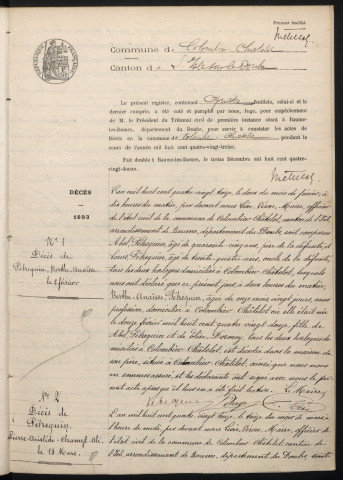 Premier feuillet.
Commune d
Canton d
Le présent registre, contenant feuillets, celui-ci et le
dernier compris, a été coté et paraphé par nous, Juge, pour empêchement
de M. le Président du Tribunal civil de première instance séant à Baume-
les-Dames, département du Doubs, pour servir à constater les actes de
Décès en la commune de pendant le
cours de l'année mil huit cent quatre-vingt-treize.
Fait double à Baume-les-Dames, le treize Décembre mil huit cent
quatre-vingt-douze.
DÉCÈS
1893
L'an mil huit cent quatre vingt treize, le deux du mois de février à
dix heures du matin, par devant nous Maire, officier
de l'état civil de la commune de Colombier Châtelot, canton de l'Isle
arrondissement de Baume, département du Doubs, sont comparus
Abel Pétrequin, âgé de quarante cinq ans, père de la défunte, et
Louis Pétrequin, âgé de trente quatre ans, oncle de la défunte,
tous les deux domiciliés à Colombier Châtelot, lesquels
nous ont déclaré que ce présent jour à deux heures du matin,
Berthe Anaïse Pétrequin, âgée de onze mois vingt jours, sans
profession, domiciliée à Colombier Châtelot où elle était née
le douze février mil huit cent quatre vingt douze, fille de
Abel Pétrequin et de tous deux
à Colombier Châtelot, est décédée dans la maison de
son père, située à Colombier Châtelot, ainsi que nous nous
en sommes assuré, et les déclarants ont signé avec nous le présent
acte après qu'il leur en a été fait lecture. Le Maire
N° 1
Décès de
Pétrequin Berthe Anaïse
le 2 février
N° 2
Décès de
Pétrequin
Pierre Aristide
le 13 Mars.
L'an mil huit cent quatre vingt treize, le treize du mois de mars à
heure de midi, par devant nous Maire, officier
de l'état civil de la commune de Colombier Châtelot, canton de
l'Isle, arrondissement de Baume, département du Doubs, sont